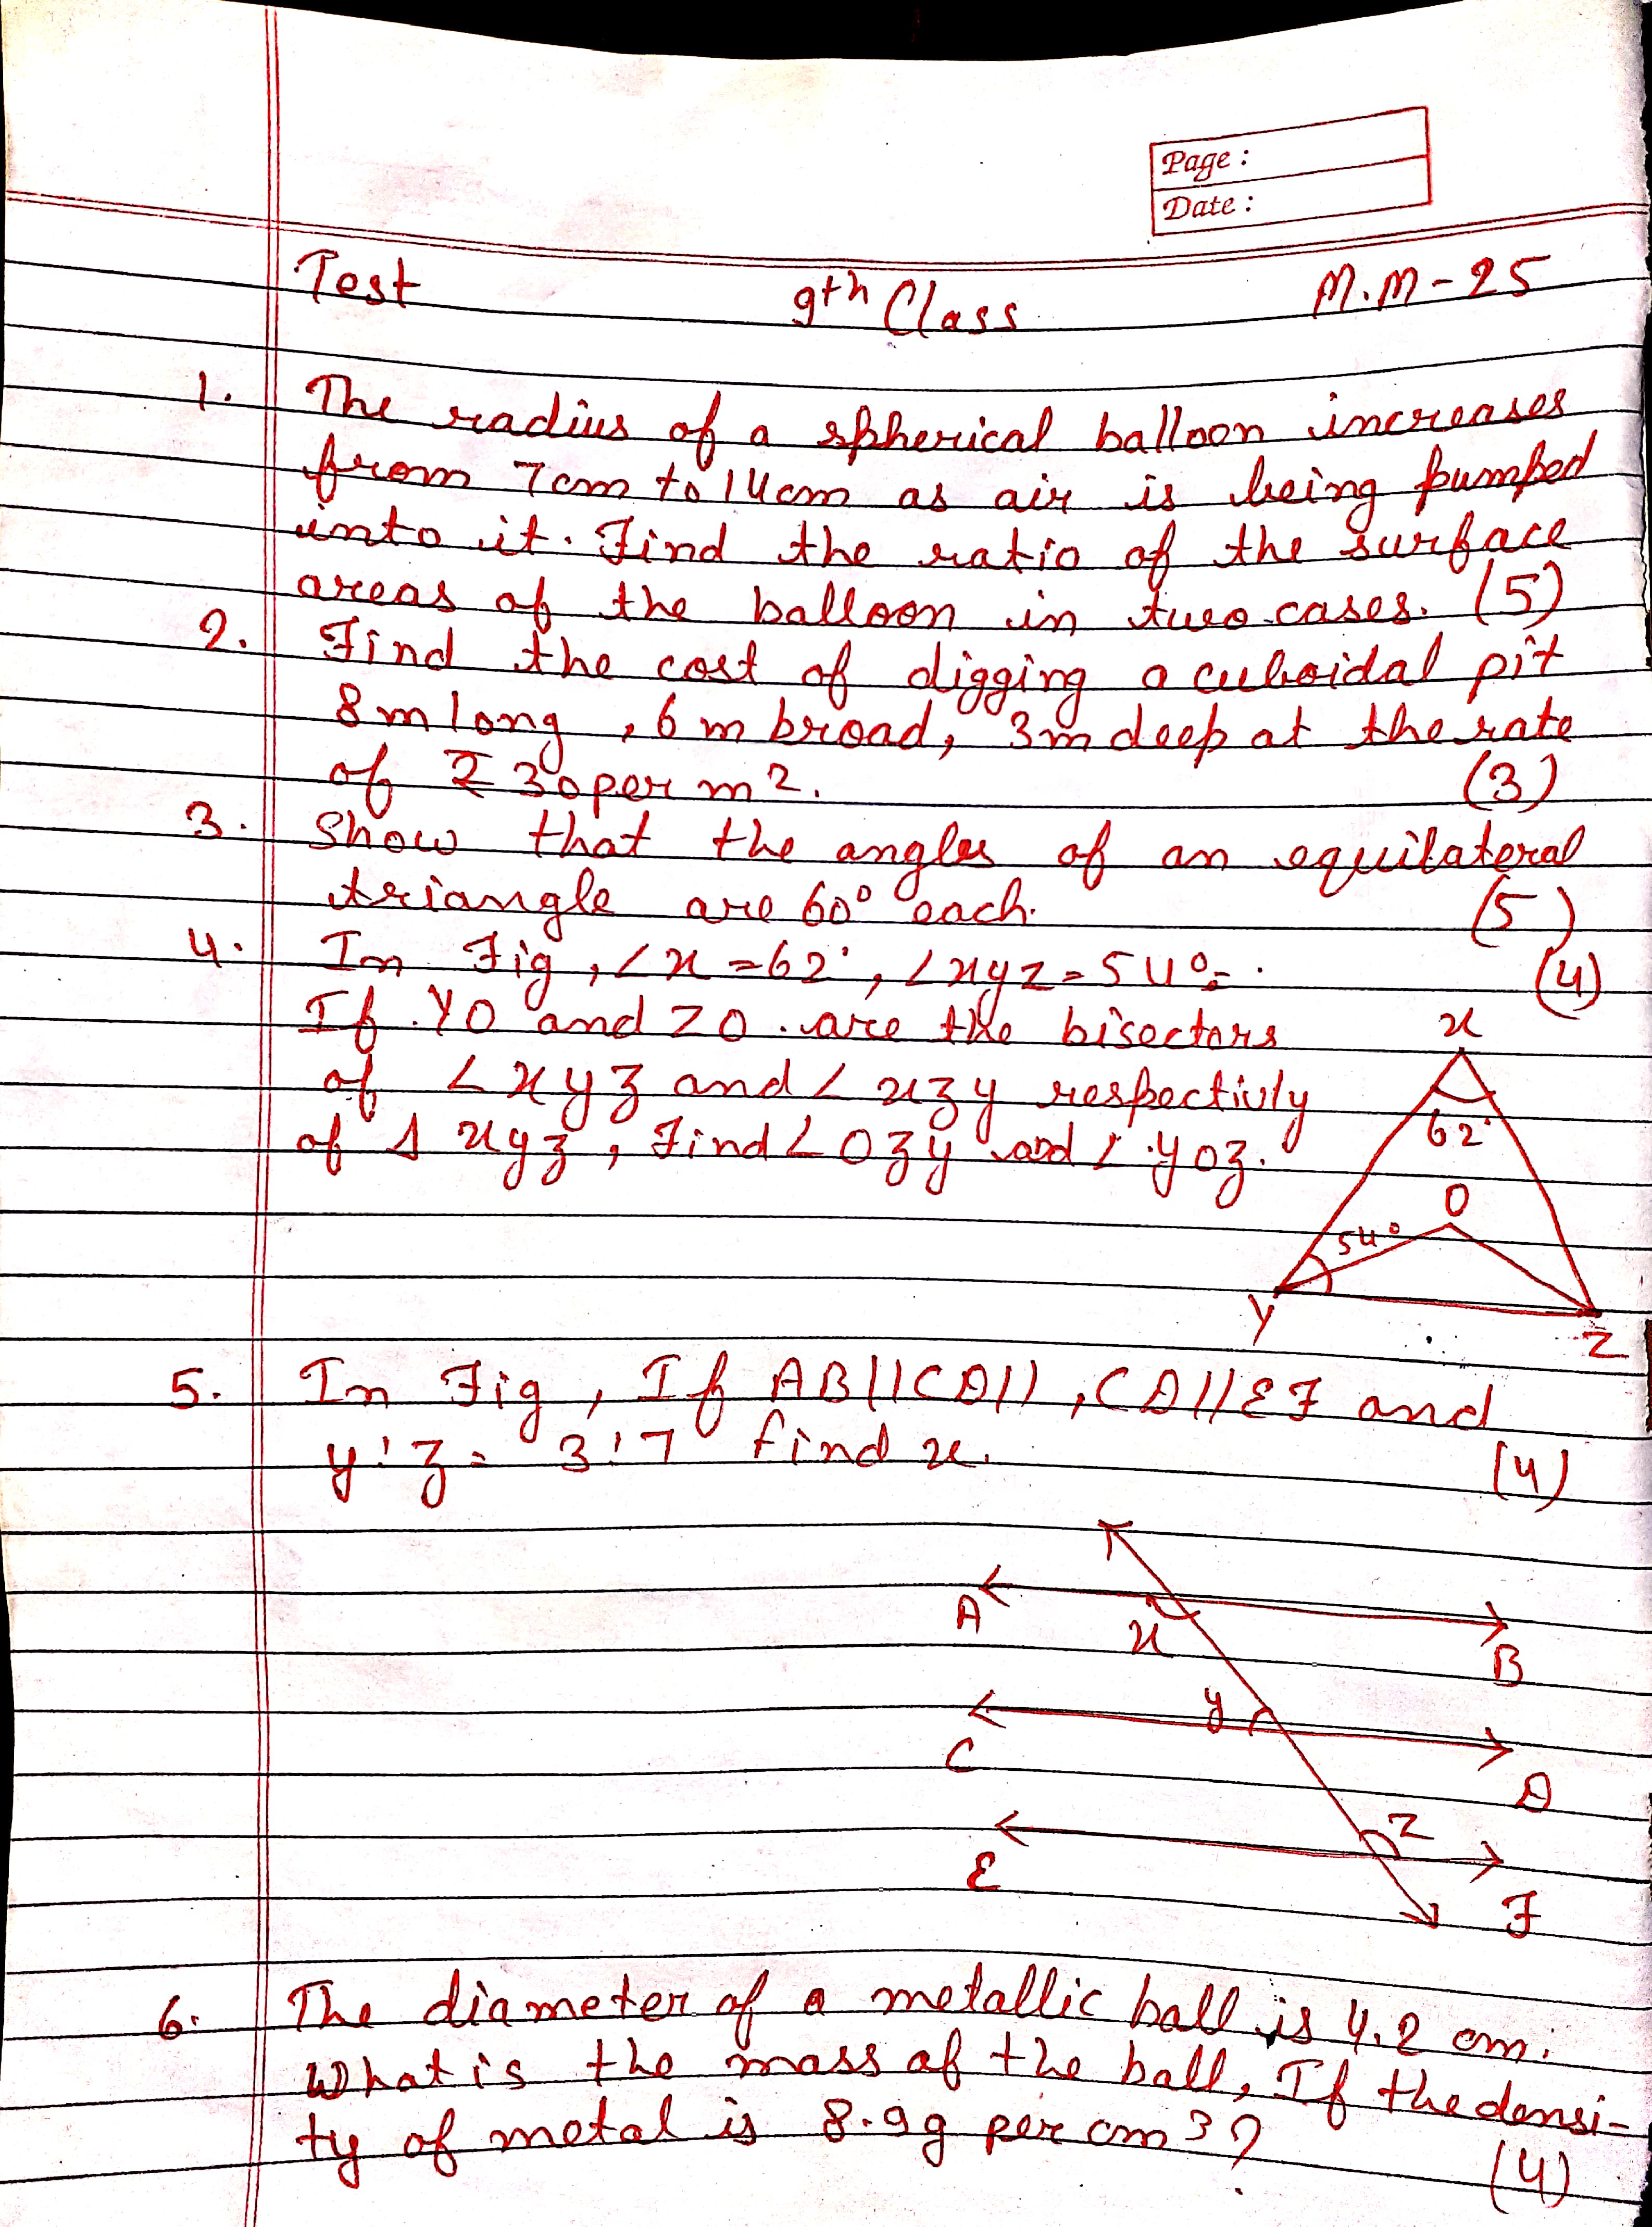 Page :
Date :
Test 9th Class M.M-25
1. The radius of a spherical balloon increases
from 7cm to 14cm as air is being pumped
into it. Find the ratio of the surface
areas of the balloon in two cases. (5)
2. Find the cost of digging a cuboidal pit
8m long, 6 m broad, 3m deep at the rate
of ₹ 30 per m2. (3)
3. Show that the angles of an equilateral
triangle are 60° each. (5)
4. In Fig, ∠x=62°, ∠xyz=54°. (4)
If YO and ZO are the bisectors
of ∠xyz and ∠xzy respectivly
of Δ xyz, Find ∠Ozy and ∠yoz.
x
62°
O
54°
Y
Z
5. In Fig, If AB||CD||, CD||EF and
y:z = 3:7 find x. (4)
A
x
B
y
C
D
z
E
F
6. The diameter of a metallic ball is 4.2 cm.
What is the mass of the ball, If the densi-
ty of metal is 8.9g per cm3? (4)